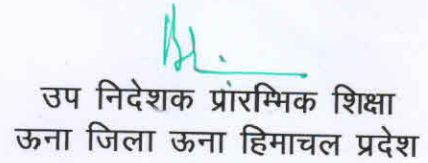 उप निदेशक प्रांरम्भिक शिक्षा
ऊना जिला ऊना हिमाचल प्रदेश